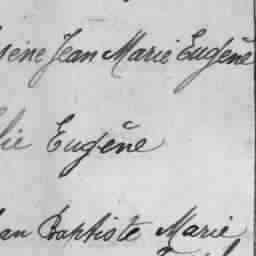 Jean Marie Eugène
Eugène
Baptiste Marie